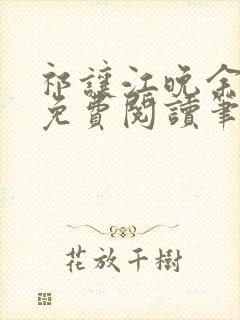 祁讓江晚余
免費閱讀筆
花放千樹